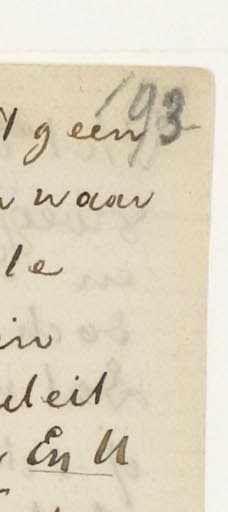 193
geen
waar
le
in
En U